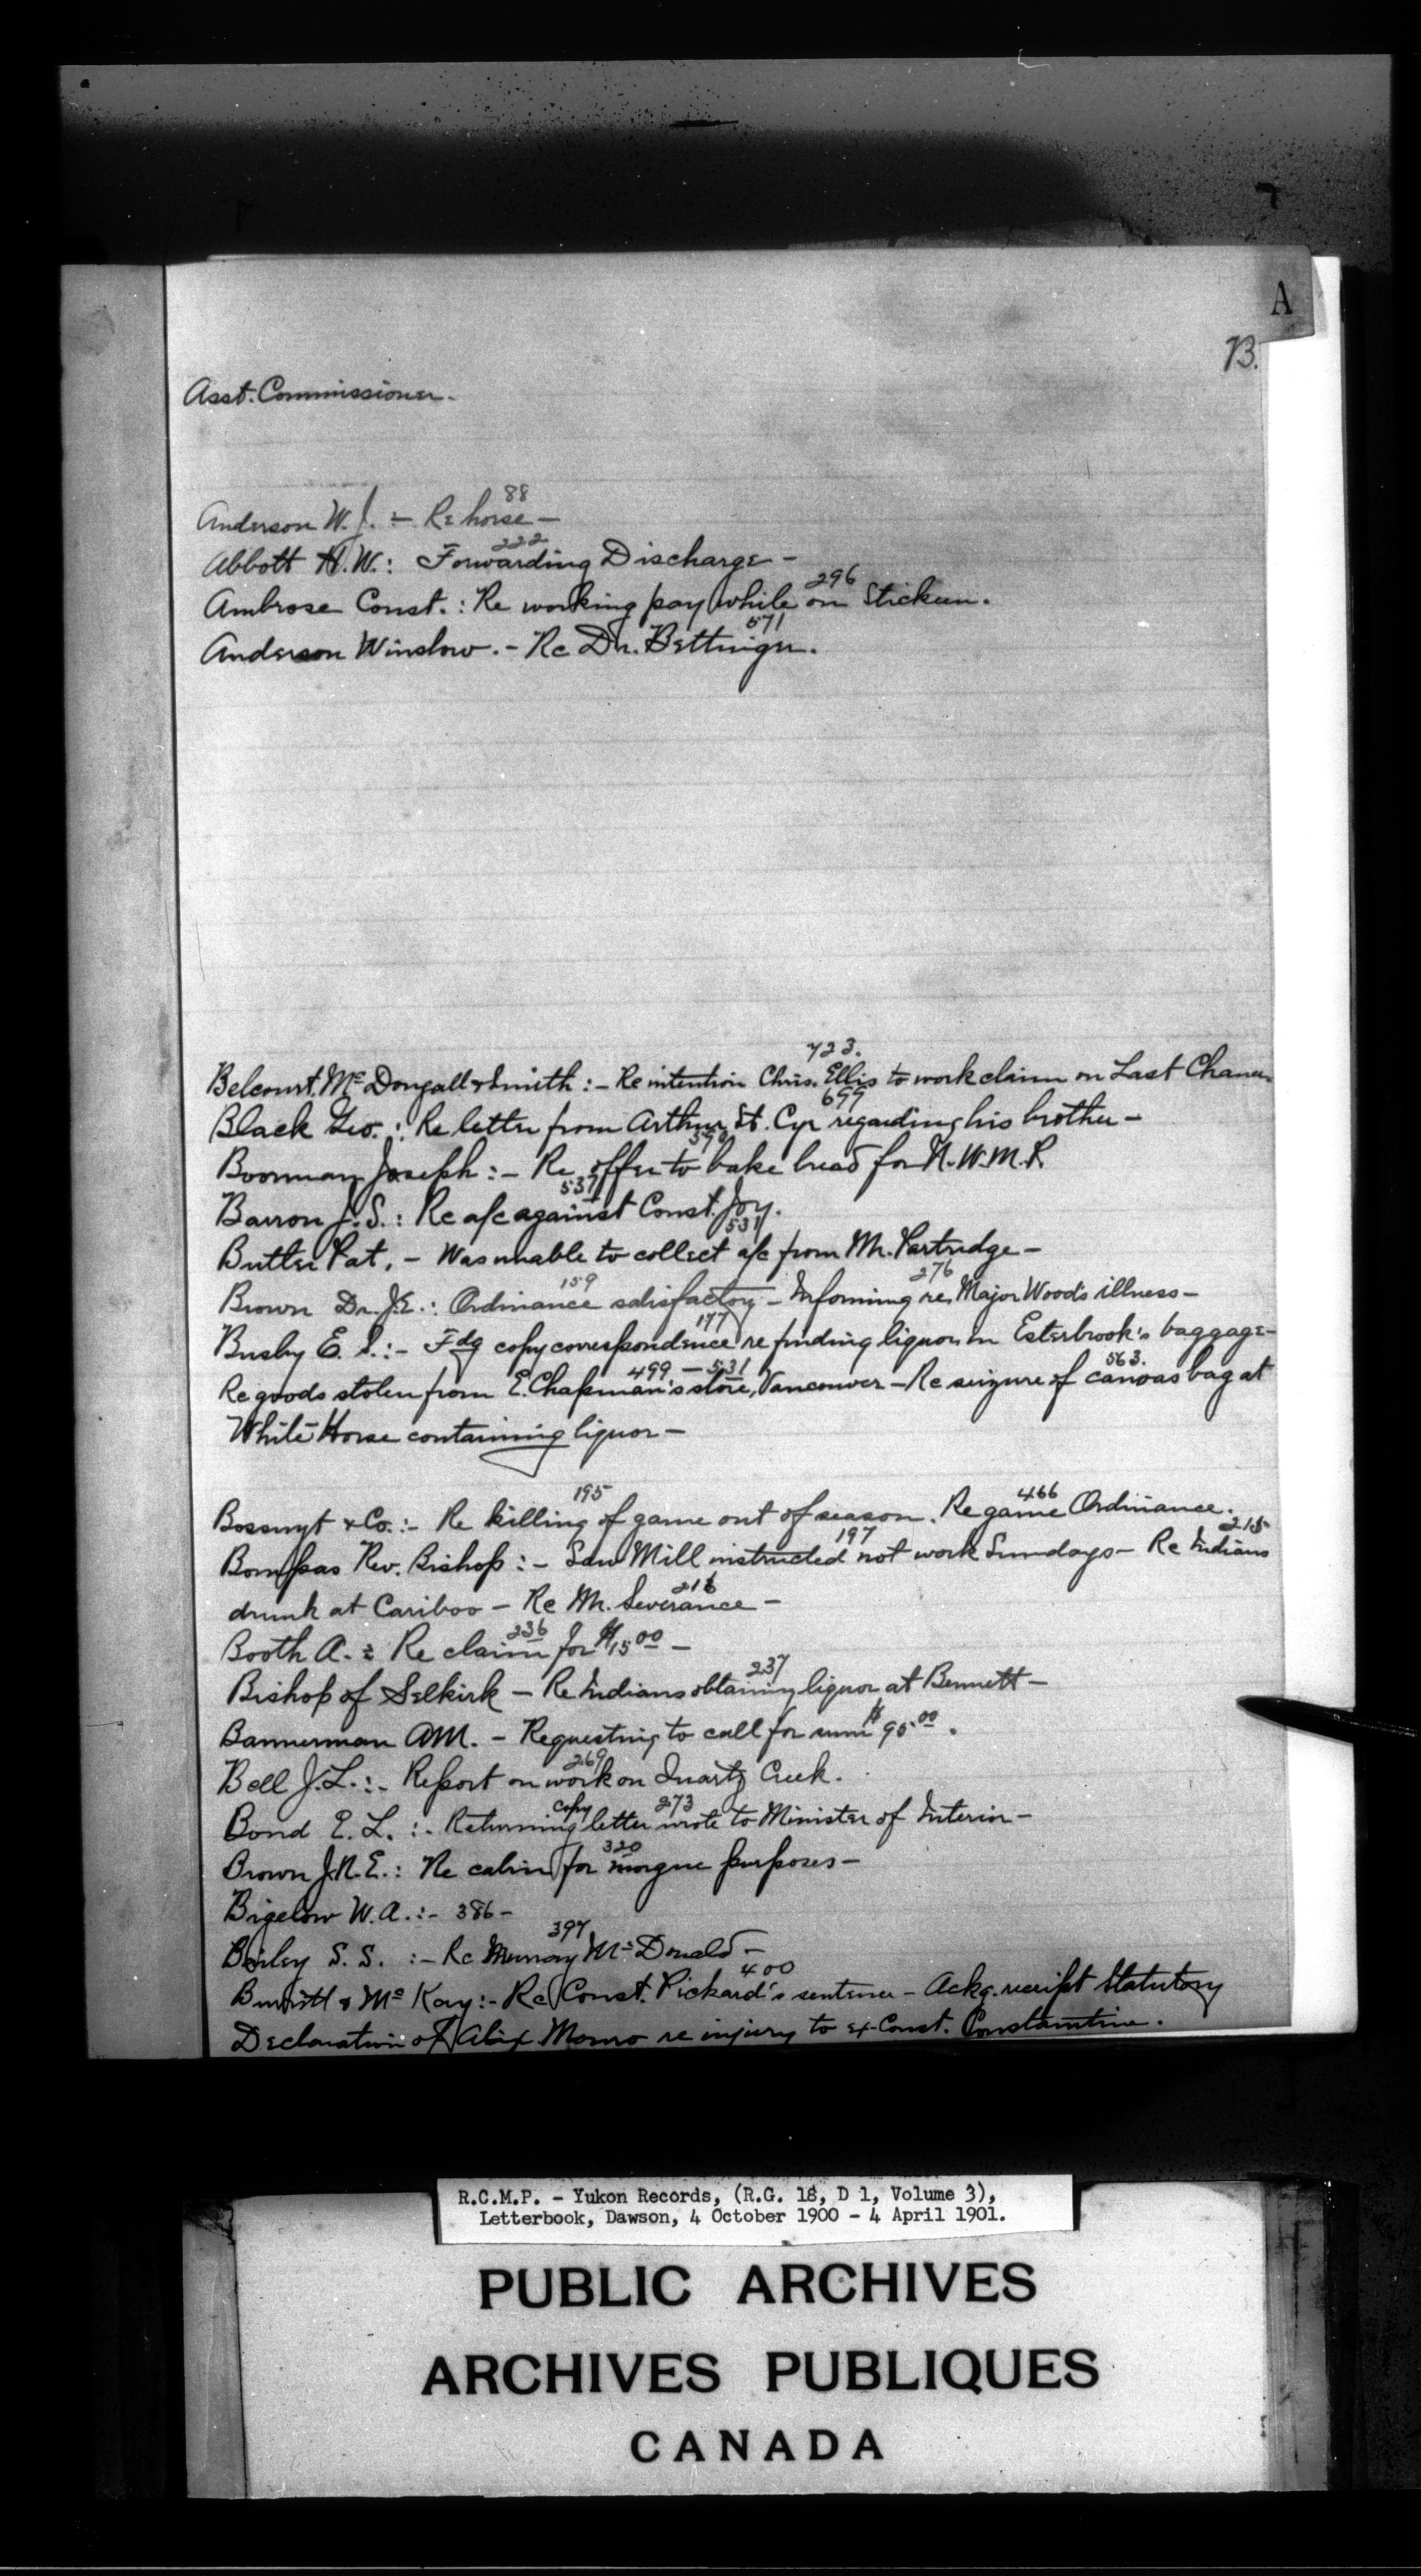 A
B.
Asst. Commissioner.
88
Anderson W. J. :- Re horse -
222
Abbott H. W. : Forwarding Discharge -
296
Ambrose Const. : Re working pay while on Stickeen.
571
Anderson Winslow. - Re Dr. Bettinger.
723.
Belcourt, Mc Dougall & Smith :- Re intention Chris. Ellis to work claim on Last Chance
699
Black Geo. : Re letter from Arthur St. Cyr regarding his brother -
590
Boorman Joseph :- Re offer to bake bread for N.W.M.P.
537
Barron J. S. : Re a/c against Const. Joy.
531
Butler Pat. - Was unable to collect a/c from Mr. Partridge -
159 276
Brown Dr. J.E. : Ordinance satisfactory - Informing re Major Wood's illness -
177
Busby E. S. :- Fdg copy correspondence re finding liquor in Esterbrook's baggage -
499 - 531 563.
Re goods stolen from E. Chapman's store, Vancouver - Re seizure of canvas bag at
White Horse containing liquor -
195 466
Bossuyt & Co. :- Re killing of game out of season. Re game Ordinance.
197 215
Bompas Rev. Bishop :- Saw Mill instructed not work Sundays - Re Indians
216
drunk at Cariboo - Re Mr. Severance -
236
Booth A. : Re claim for $15.00 -
237
Bishop of Selkirk - Re Indians obtaining liquor at Bennett -
Bannerman AM. - Requesting to call for sum $95.00.
269
Bell J. L. :- Report on work on Quartz Creek.
copy 273
Bond E. L. :- Returning letter wrote to Minister of Interior -
320
Brown J.N.E. : Re cabin for morgue purposes -
Bigelow W. A. :- 386 -
397
Bailey S. S. :- Re Murray McDonald -
400
Burritt & McKay :- Re Const. Pickard's sentence - Ackg. receipt Statutory
Declaration of Alix. Monro re injury to ex-Const. Constantine.
R.C.M.P. - Yukon Records, (R.G. 18, D 1, Volume 3),
Letterbook, Dawson, 4 October 1900 - 4 April 1901.
PUBLIC ARCHIVES
ARCHIVES PUBLIQUES
CANADA